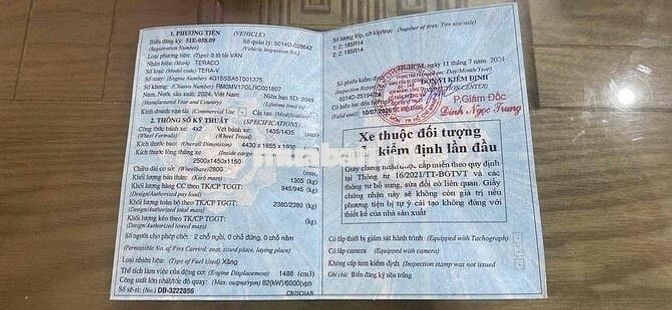 1. PHƯƠNG TIỆN (VEHICLE)
Biển đăng ký: 51E-058.09 Số quản lý: 5014D-028642
(Registration Number) (Vehicle Inspection No.)
Loại phương tiện: (Type) ô tô tải VAN
Nhãn hiệu: (Mark) TERACO
Số loại: (Model code) TERA-V
Số máy: (Engine Number) 4G15SSAST001375
Số khung: (Chassis Number) RMGMV17GLRC001807
Năm, Nước sản xuất: 2024, Việt Nam Niên hạn SD: 2049
(Manufactured Year and Country) (Lifetime limit to)
Kinh doanh vận tải: (Commercial Use) Cải tạo: (Modification)
2. THÔNG SỐ KỸ THUẬT (SPECIFICATIONS)
Công thức bánh xe: 4x2 Vết bánh xe: 1435/1435
(Wheel Formula) (Wheel Tread)
Kích thước bao: (Overall Dimension) 4430 x 1655 x 1935
Kích thước lòng thùng xe
2500x1450x1150
Chiều dài cơ sở: (Wheelbase) 2800
Khối lượng bản thân: (Kerb mass) 1305 (kg)
Khối lượng hàng CC theo TK/CP TGGT: 945/945 (kg)
(Design/Authorized pay load)
Khối lượng toàn bộ theo TK/CP TGGT: 2380/2380 (kg)
(Design/Authorized total mass)
Khối lượng kéo theo TK/CP TGGT: (kg)
(Design/Authorized towed mass)
Số người cho phép chở: 2 chỗ ngồi, 0 chỗ đứng, 0 chỗ nằm
(Permissible No. of Pers Carried: seat, stood place, laying place)
Loại nhiên liệu: (Type of Fuel Used) Xăng
Thể tích làm việc của động cơ: (Engine Displacement) 1488 (cm3)
Công suất lớn nhất/tốc độ quay: (Max. output/rpm) 82(kW)/6000vph
Số sê-ri: (No.) DB-3222856
Số lượng lốp, cỡ lốp/trục: (Number of tires, Tire size/axle)
1: 2; 185R14
2: 2; 185R14
Số phiếu kiểm định
(Inspection Report No)
ngày 11 tháng 7 năm 2024
(Day/Month/Year)
ĐƠN VỊ KIỂM ĐỊNH
Có hiệu lực đến hết ngày
P.Giám Đốc
Đinh Ngọc Trung
Xe thuộc đối tượng
kiểm định lần đầu
Giấy chứng nhận được cấp miễn theo quy định
tại Thông tư 16/2021/TT-BGTVT và các
thông tư bổ sung, sửa đổi có liên quan. Giấy
chứng nhận này sẽ không còn giá trị nếu
phương tiện bị tự ý cải tạo không đúng với
thiết kế của nhà sản xuất
Có lắp thiết bị giám sát hành trình (Equipped with Tachograph)
Có lắp camera (Equipped with camera)
Không cấp tem kiểm định (Inspection stamp was not issued)
Ghi chú: Biển đăng ký nền trắng
muaban